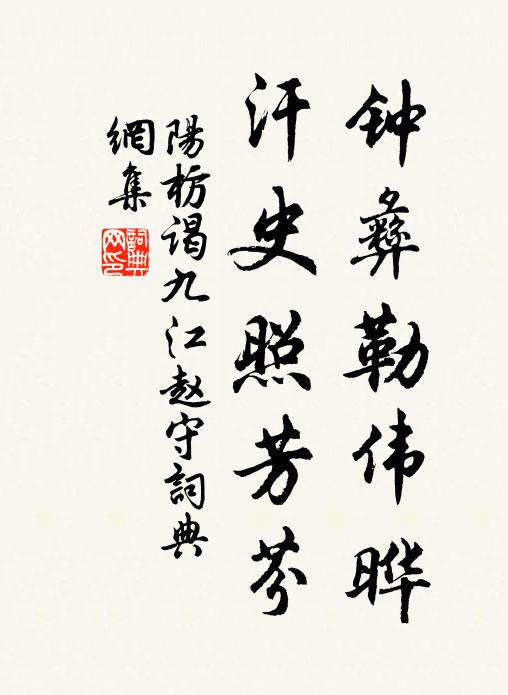 钟彝勒伟晔
汗史照芳芬
陽枋谒九江赵守詞典
網集
詞典網印